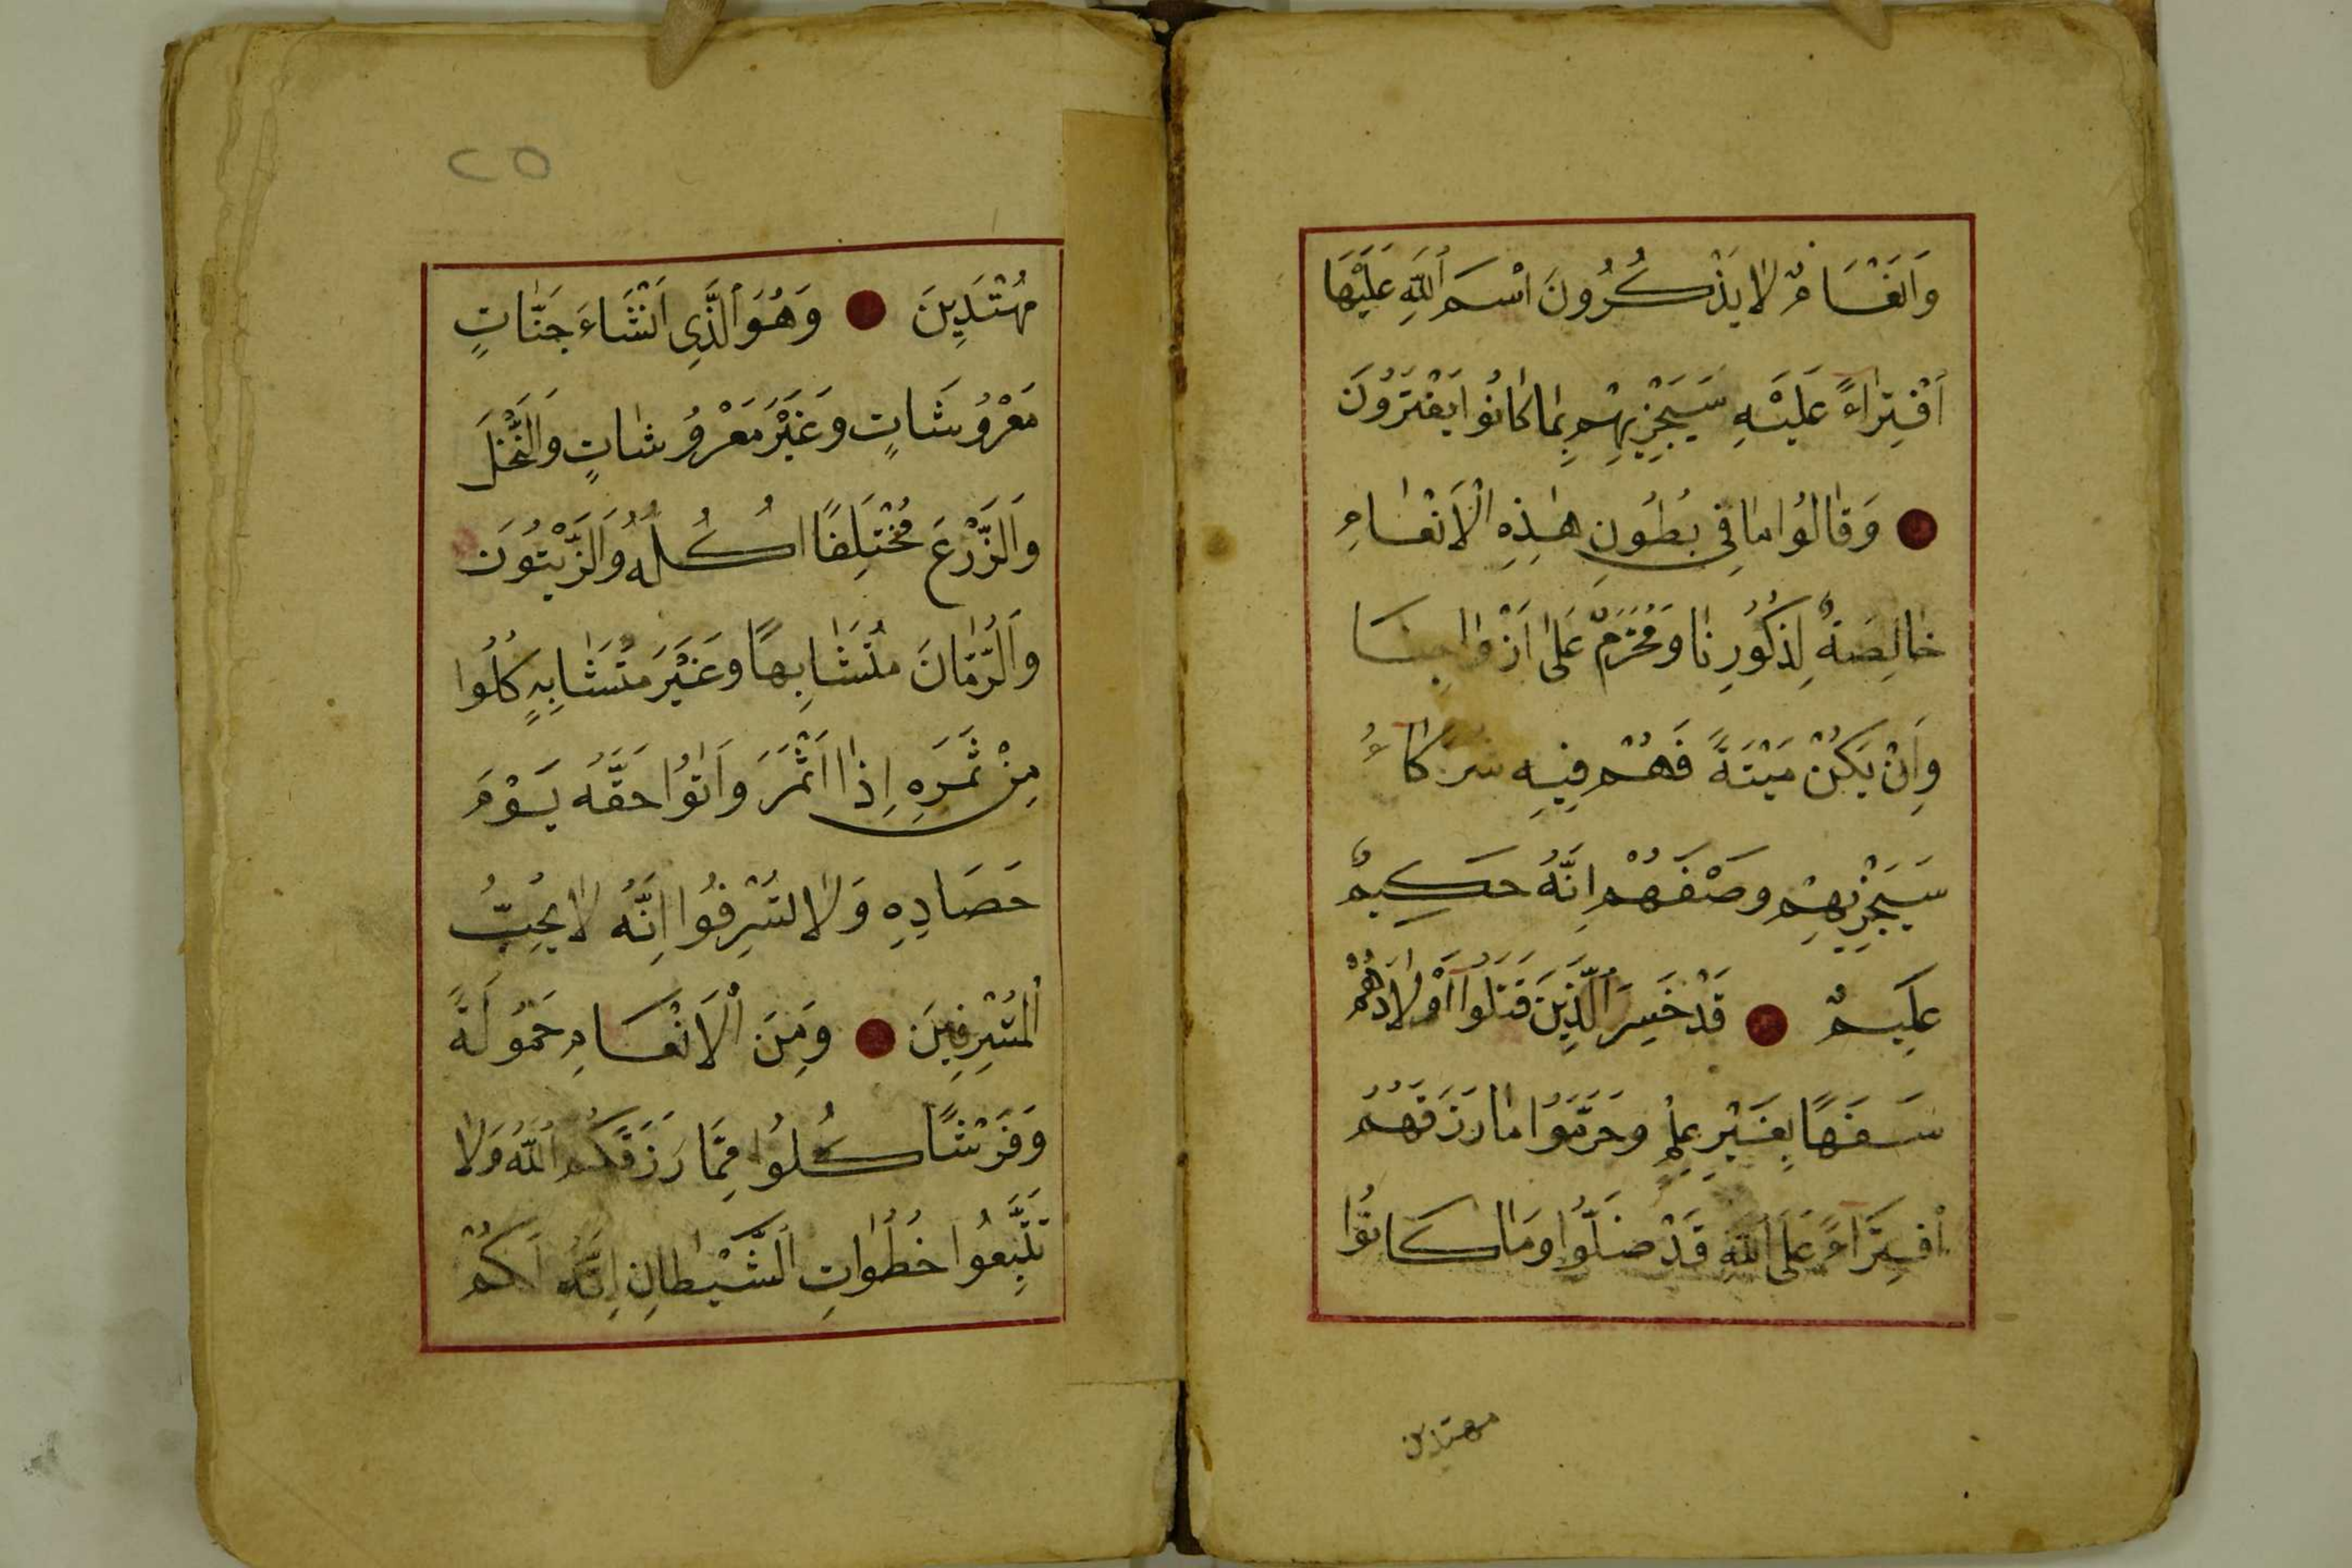 وَاَنْعَامٌ لَا يَذْكُرُونَ اسْمَ اللّٰهِ عَلَيْهَا
اَفْتِرَاءً عَلَيْهِ سَيَجْزِيهِمْ بِمَا كَانُوا يَفْتَرُونَ
وَقَالُوا مَا فِي بُطُونِ هٰذِهِ الْاَنْعَامِ
خَالِصَةٌ لِذُكُورِنَا وَمُحَرَّمٌ عَلٰى اَزْوَاجِنَا
وَاِنْ يَكُنْ مَيْتَةً فَهُمْ فِيهِ شُرَكَاءُ
سَيَجْزِيهِمْ وَصْفَهُمْ اِنَّهُ حَكِيمٌ
عَلِيمٌ قَدْ خَسِرَ الَّذِينَ قَتَلُوا اَوْلَادَهُمْ
سَفَهًا بِغَيْرِ عِلْمٍ وَحَرَّمُوا مَا رَزَقَهُمُ
اَفْتِرَاءً عَلَى اللّٰهِ قَدْ ضَلُّوا وَمَا كَانُوا
مهتدين
٢٥
مُهْتَدِينَ وَهُوَ الَّذِى اَنْشَاَءَ جَنَّاتٍ
مَعْرُوشَاتٍ وَغَيْرَ مَعْرُوشَاتٍ وَالنَّخْلَ
وَالزَّرْعَ مُخْتَلِفًا اُكُلُهُ وَالزَّيْتُونَ
وَالرُّمَّانَ مُتَشَابِهًا وَغَيْرَ مُتَشَابِهٍ كُلُوا
مِنْ ثَمَرِهِ اِذَا اَثْمَرَ وَاٰتُوا حَقَّهُ يَوْمَ
حَصَادِهِ وَلَا تُسْرِفُوا اِنَّهُ لَا يُحِبُّ
الْمُسْرِفِينَ وَمِنَ الْاَنْعَامِ حَمُولَةً
وَفَرْشًا كُلُوا مِمَّا رَزَقَكُمُ اللّٰهُ وَلَا
تَتَّبِعُوا خُطُوَاتِ الشَّيْطَانِ اِنَّهُ لَكُمْ